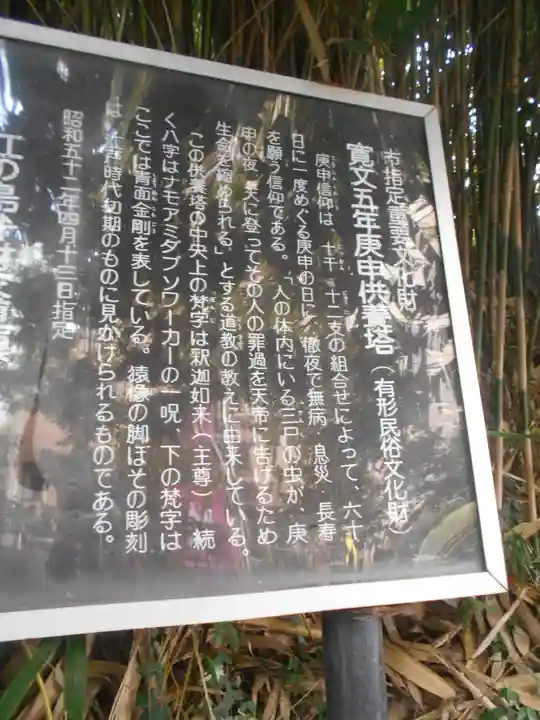 市指定重要文化財
寛文五年庚申供養塔（有形民俗文化財）
庚申信仰は、十干、十二支の組合せによって、六十
日に一度めぐる庚申の日に、徹夜で無病・息災・長寿
を願う信仰である。「人の体内にいる三尸の虫が、庚
申の夜、天に登ってその人の罪過を天帝に告げるため
生命を縮められる」とする道教の教えに由来している。
この供養塔の中央上の梵字は釈迦如来（主尊）、続
く八字はナモアミダブソワーカーの一呪、下の梵字は
ここでは青面金剛を表している。猿像の脚ほその彫刻
は、江戸時代初期のものに見かけられるものである。
昭和五十二年四月十三日指定
江の島